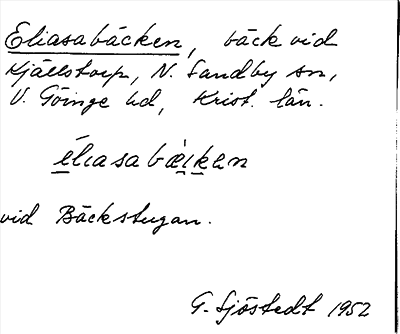 Eliasabäcken, bäck vid
Kjällstorp, N. Sandby sn,
V. Göinge hd, Krist. län.
éliasabæ̀ıkɛn
vid Bäckstugan.
G. Sjöstedt 1952